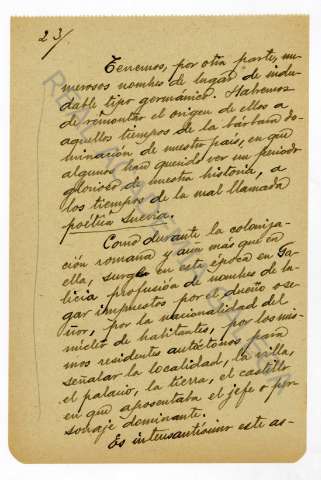 23/
Tenemos, por otra parte, nu-
merosos nombres de lugar de indu-
dable tipo germánico. Habremos
de remontar el origen de ellos a
aquellos tiempos de la bárbara do-
minación de nuestro país, en que
algunos han querido ver un periodo
glorioso de nuestra historia, a
los tiempos de la mal llamada
poética suevia.
Como durante la coloniza-
ción romana y aun más que en
ella, surge en esta época en Ga-
licia profusión de nombres de lu-
gar impuestos por el dueño o se-
ñor, por la nacionalidad del
núcleo de habitantes, por los mis-
mos residentes autóctonos para
señalar la localidad, la villa,
el palacio, la tierra, el castillo
en que aposentaba el jefe o per-
sonaje dominante.
Es interesantísimo este as-